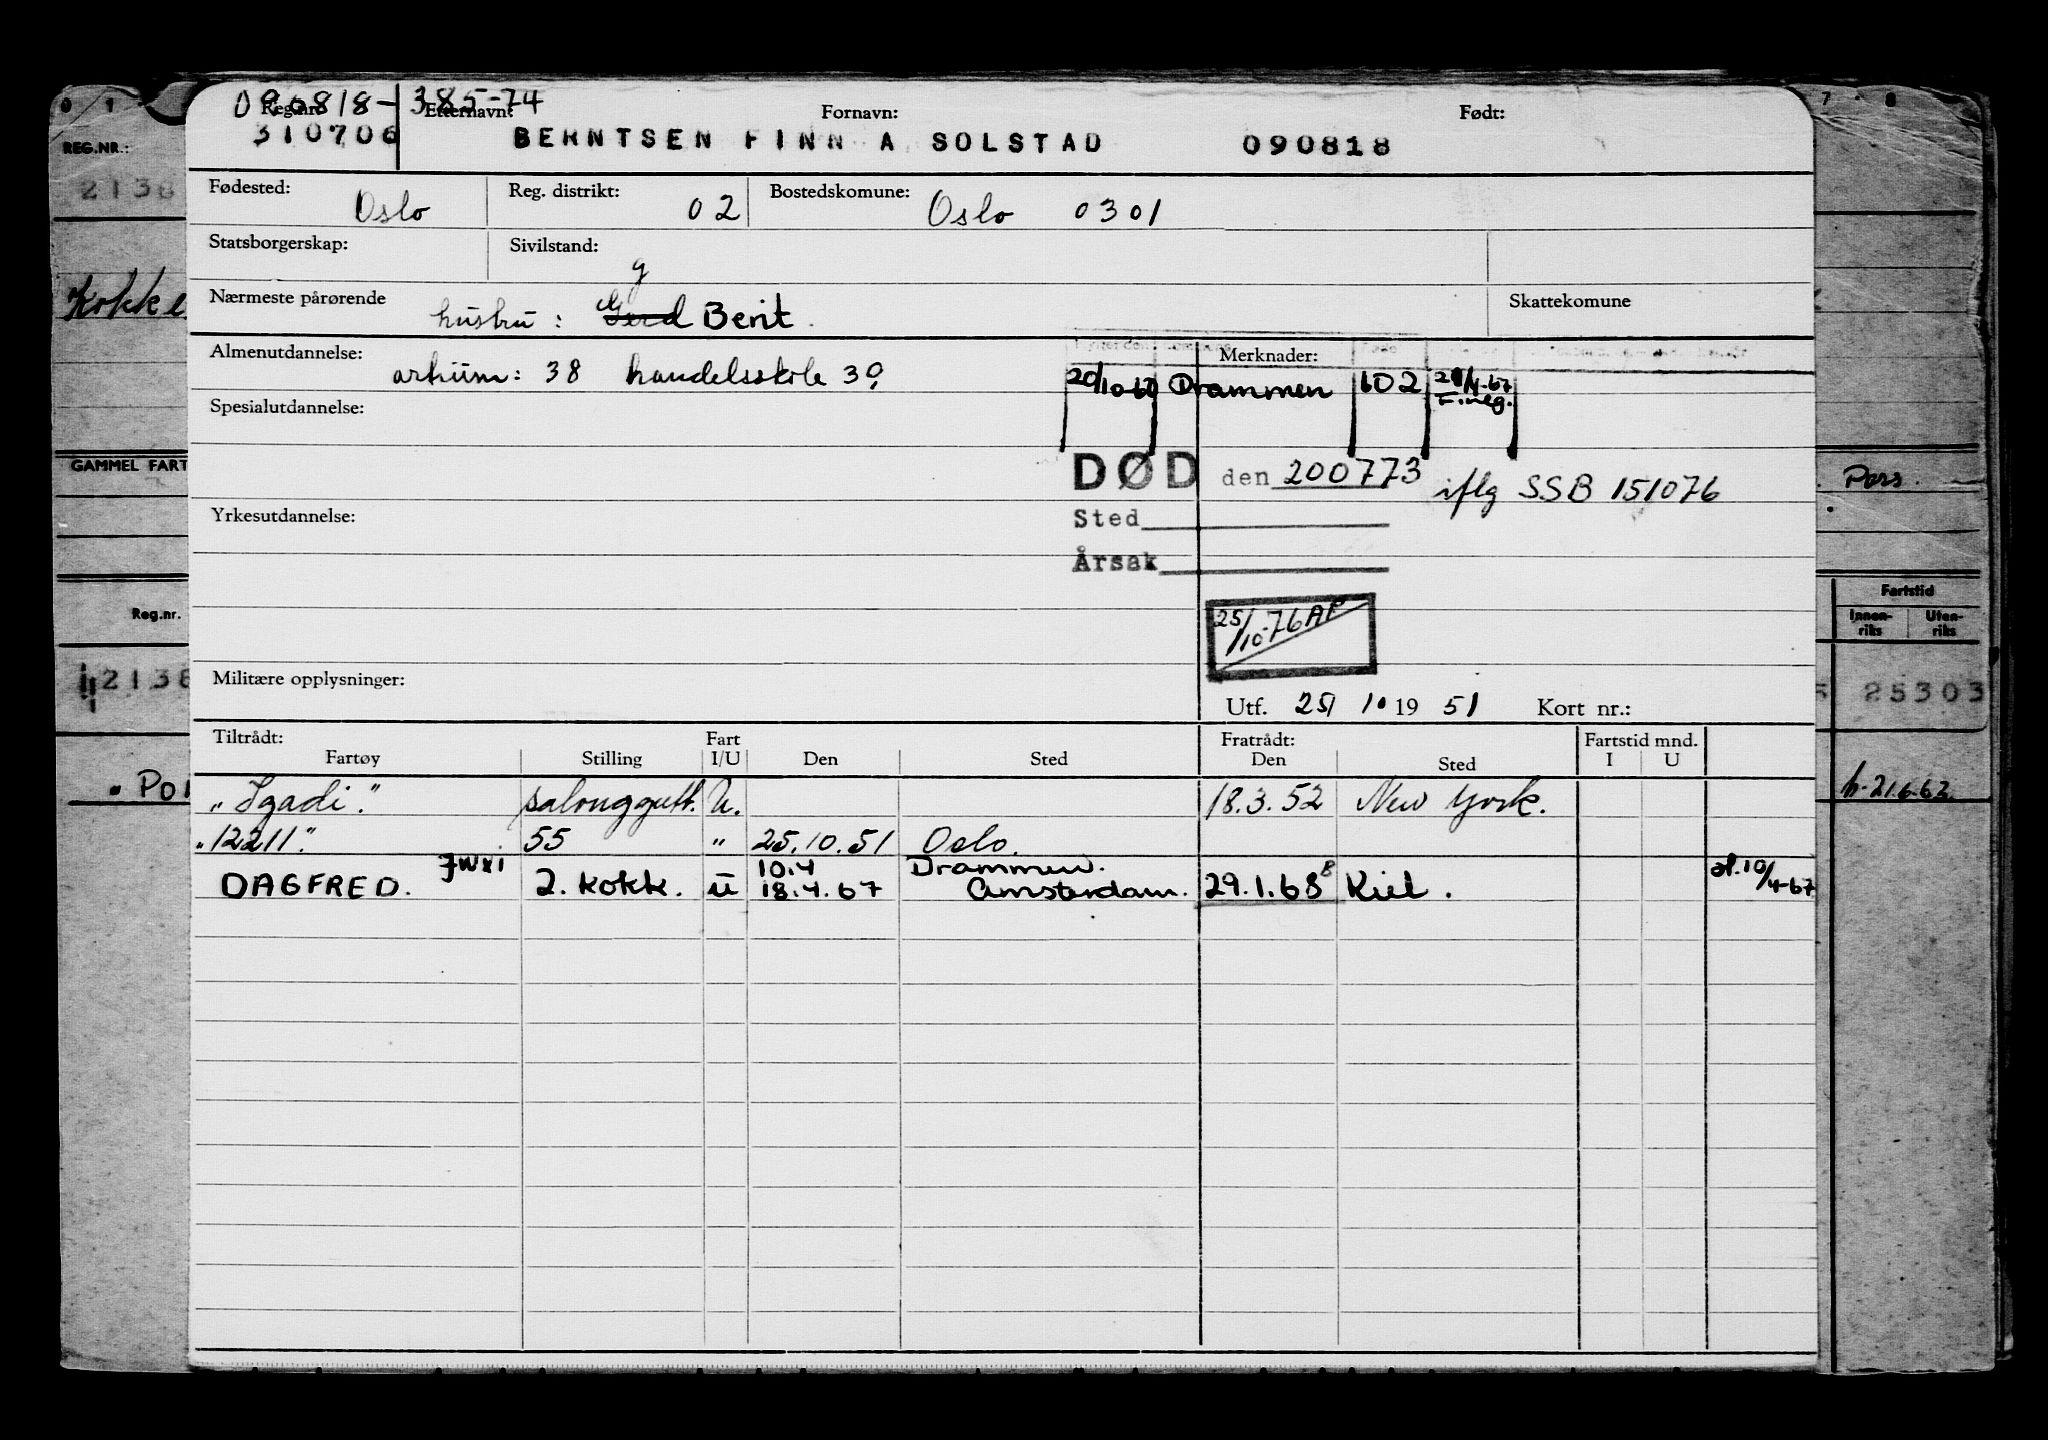 090818-38574
Reg.nr. Etternavn: Fornavn: Født:
310706 BERNTSEN FINN A SOLSTAD 090818
Fødested: Oslo Reg. distrikt: 02 Bostedskomune: Oslo 0301
Statsborgerskap: Sivilstand: g
Nærmeste pårørende hustru: Gerd Berit. Skattekomune
Almenutdannelse: artium: 38 handelsskole 39 Merknader:
20/10-67 Drammen 602 21/4-67
F.neg.
Spesialutdannelse:
DØD den 200773 iflg SSB 151076
Yrkesutdannelse: Sted
Årsak
25/10-76 AP
Militære opplysninger:
Utf. 25/ 10 19 51 Kort nr.:
Tiltrådt: Fart Fratrådt: Fartstid mnd.
Fartøy Stilling I/U Den Sted Den Sted I U
"Igadi." salonggutt. U. 18.3.52 New York.
"12211". 55 " 25.10.51 Oslo.
DAGFRED. JWXI 2. kokk. U 10.4 Drammen.
18.4.67 Amsterdam. 29.1.68 Kiel. 10/4-67
0 1
REG.NR.:
2138
Kokke
GAMMEL FART
Reg.nr.
2138
7 8
Pass.
Fartstid
Innen-
riks
Uten-
riks
25303
21.6.62